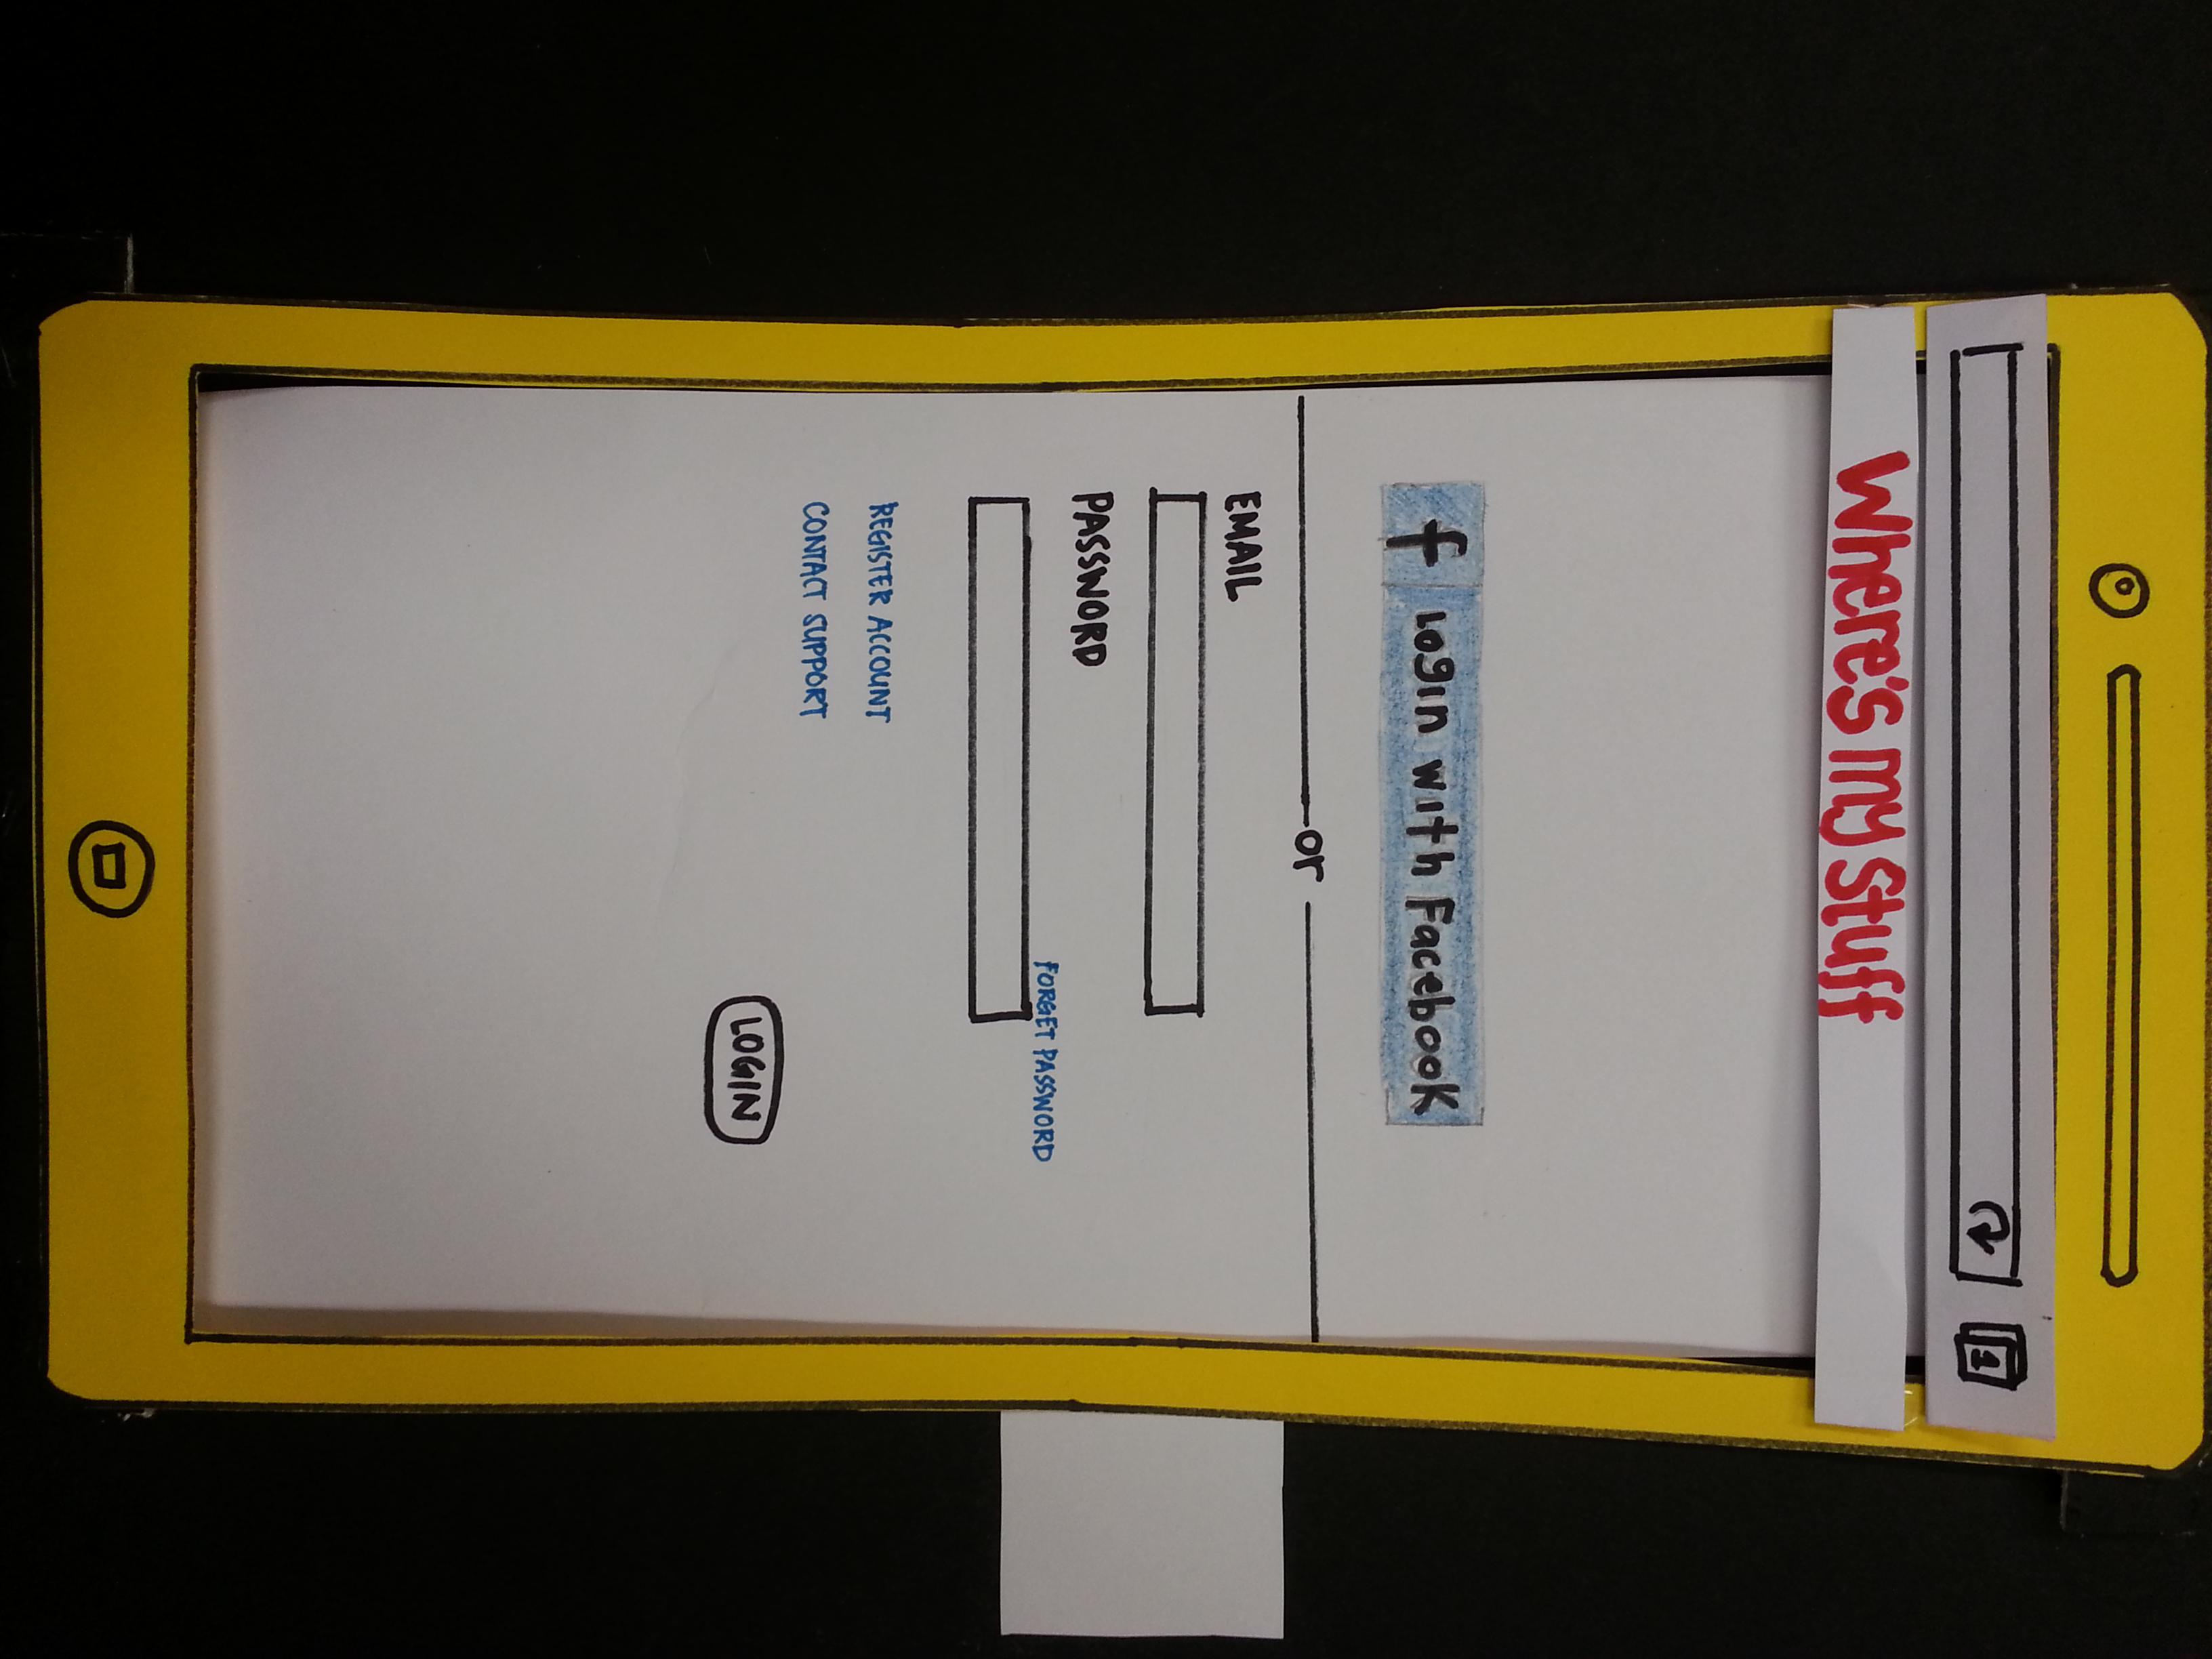 Where's my Stuff
f Login with Facebook
or
EMAIL
PASSWORD
FORGET PASSWORD
REGISTER ACCOUNT
CONTACT SUPPORT
LOGIN